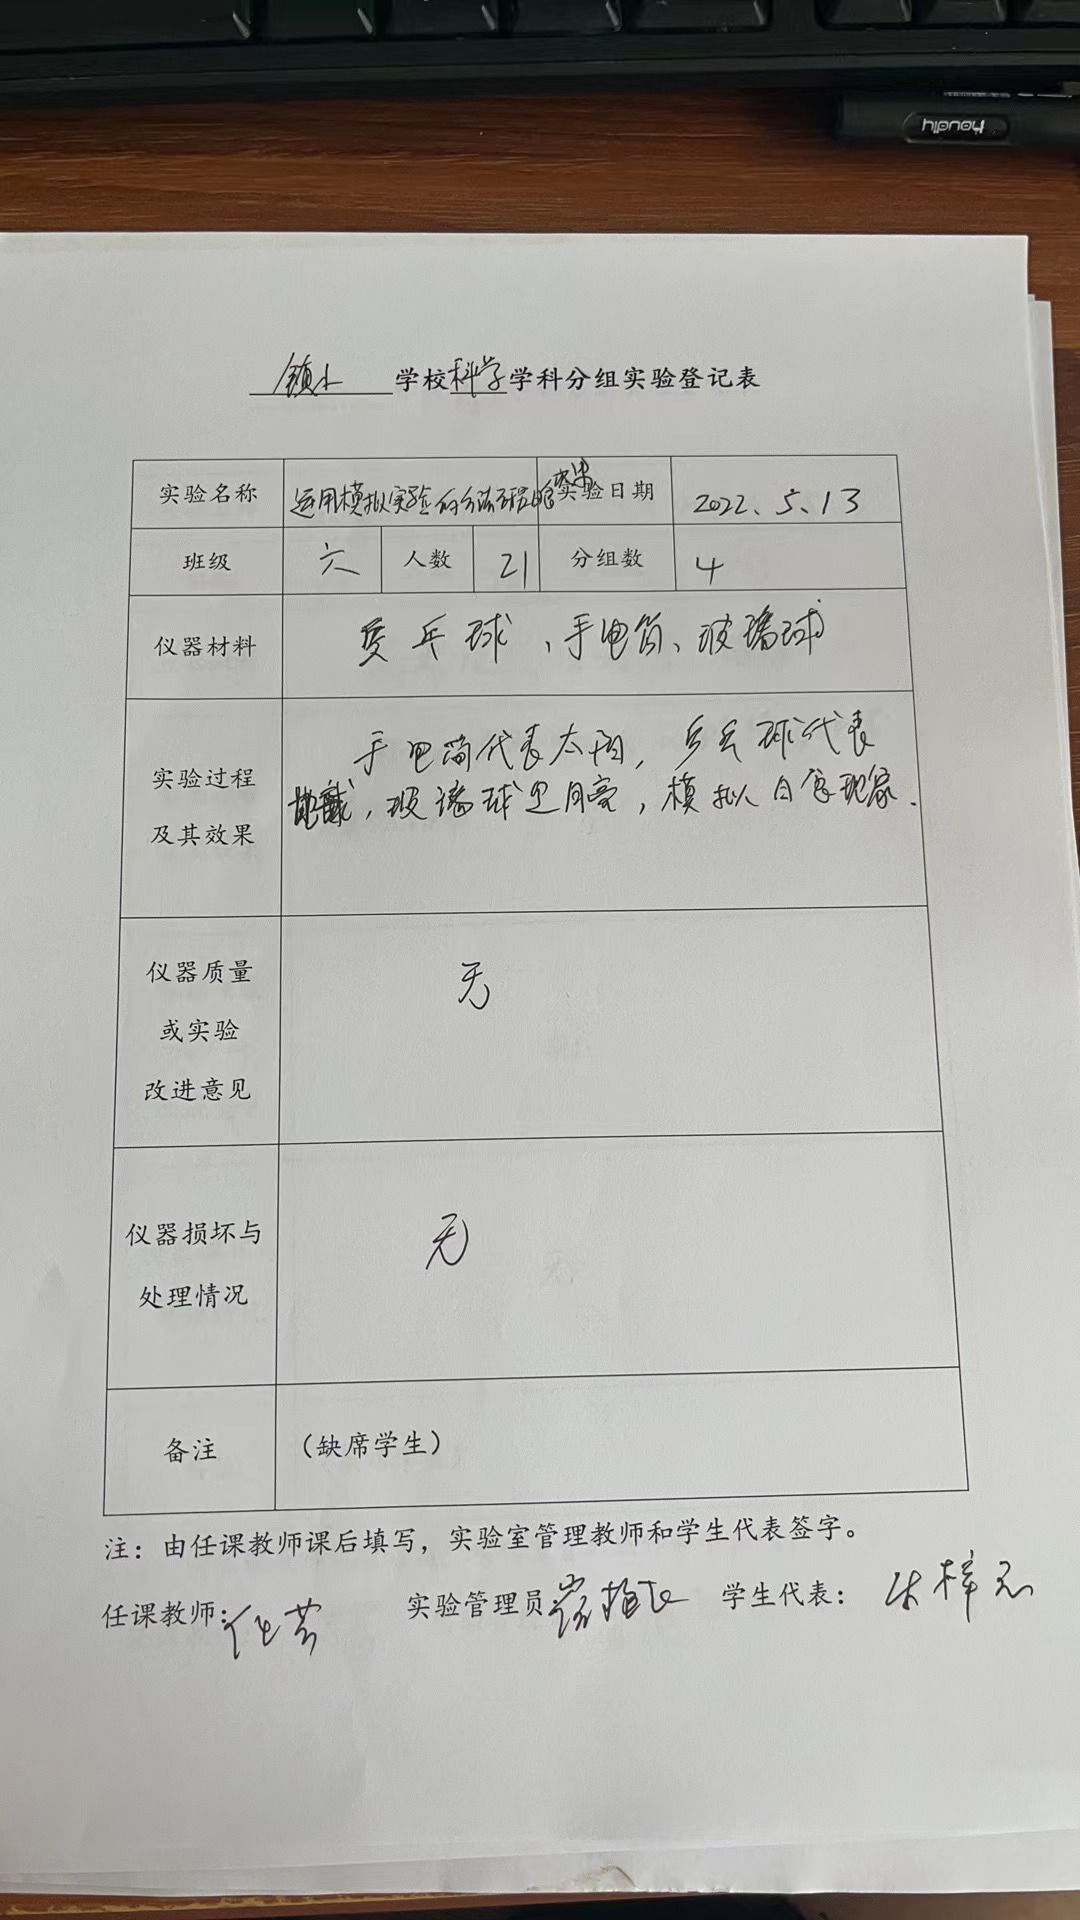 houdly
镇小 学校科学学科分组实验登记表
实验名称 运用模拟实验的方法研究日食 实验日期 2022.5.13
班级 六 人数 21 分组数 4
仪器材料 乒乓球、手电筒、玻璃球
实验过程 手电筒代表太阳,乒乓球代表
及其效果 地球,玻璃球是月亮,模拟日食现象.
仪器质量
或实验 无
改进意见
仪器损坏与 无
处理情况
备注 (缺席学生)
注:由任课教师课后填写,实验室管理教师和学生代表签字。
任课教师: 任芸 实验管理员 学生代表: 梓